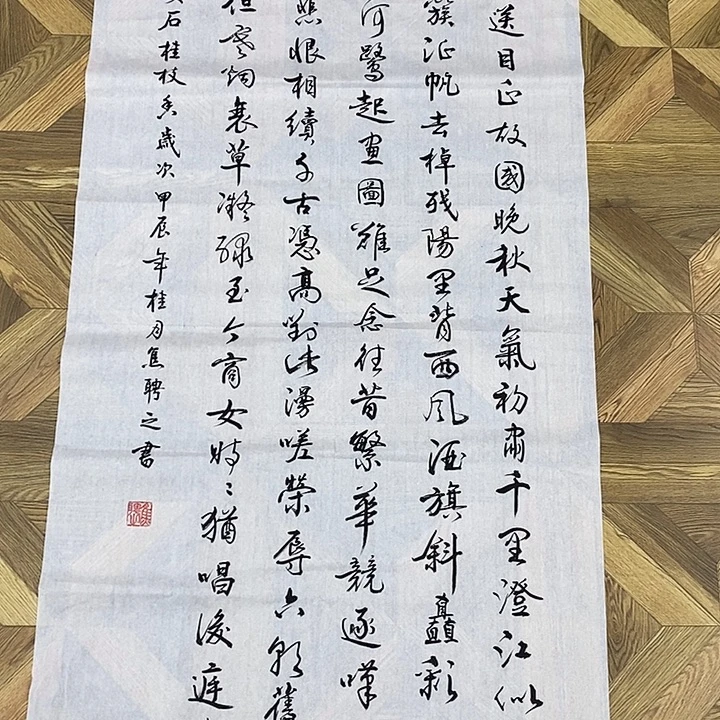 送目正故國晚秋天氣初肅千里澄江似
簇征帆去棹残陽里背西風酒旗斜矗彩
河鷺起畫圖難足念往昔繁華競逐嘆
悲恨相續千古憑高對此漫嗟榮辱六朝舊
但寒烟衰草凝綠至今商女時々猶唱後庭
石桂枝香歲次甲辰年桂月焦聘之書